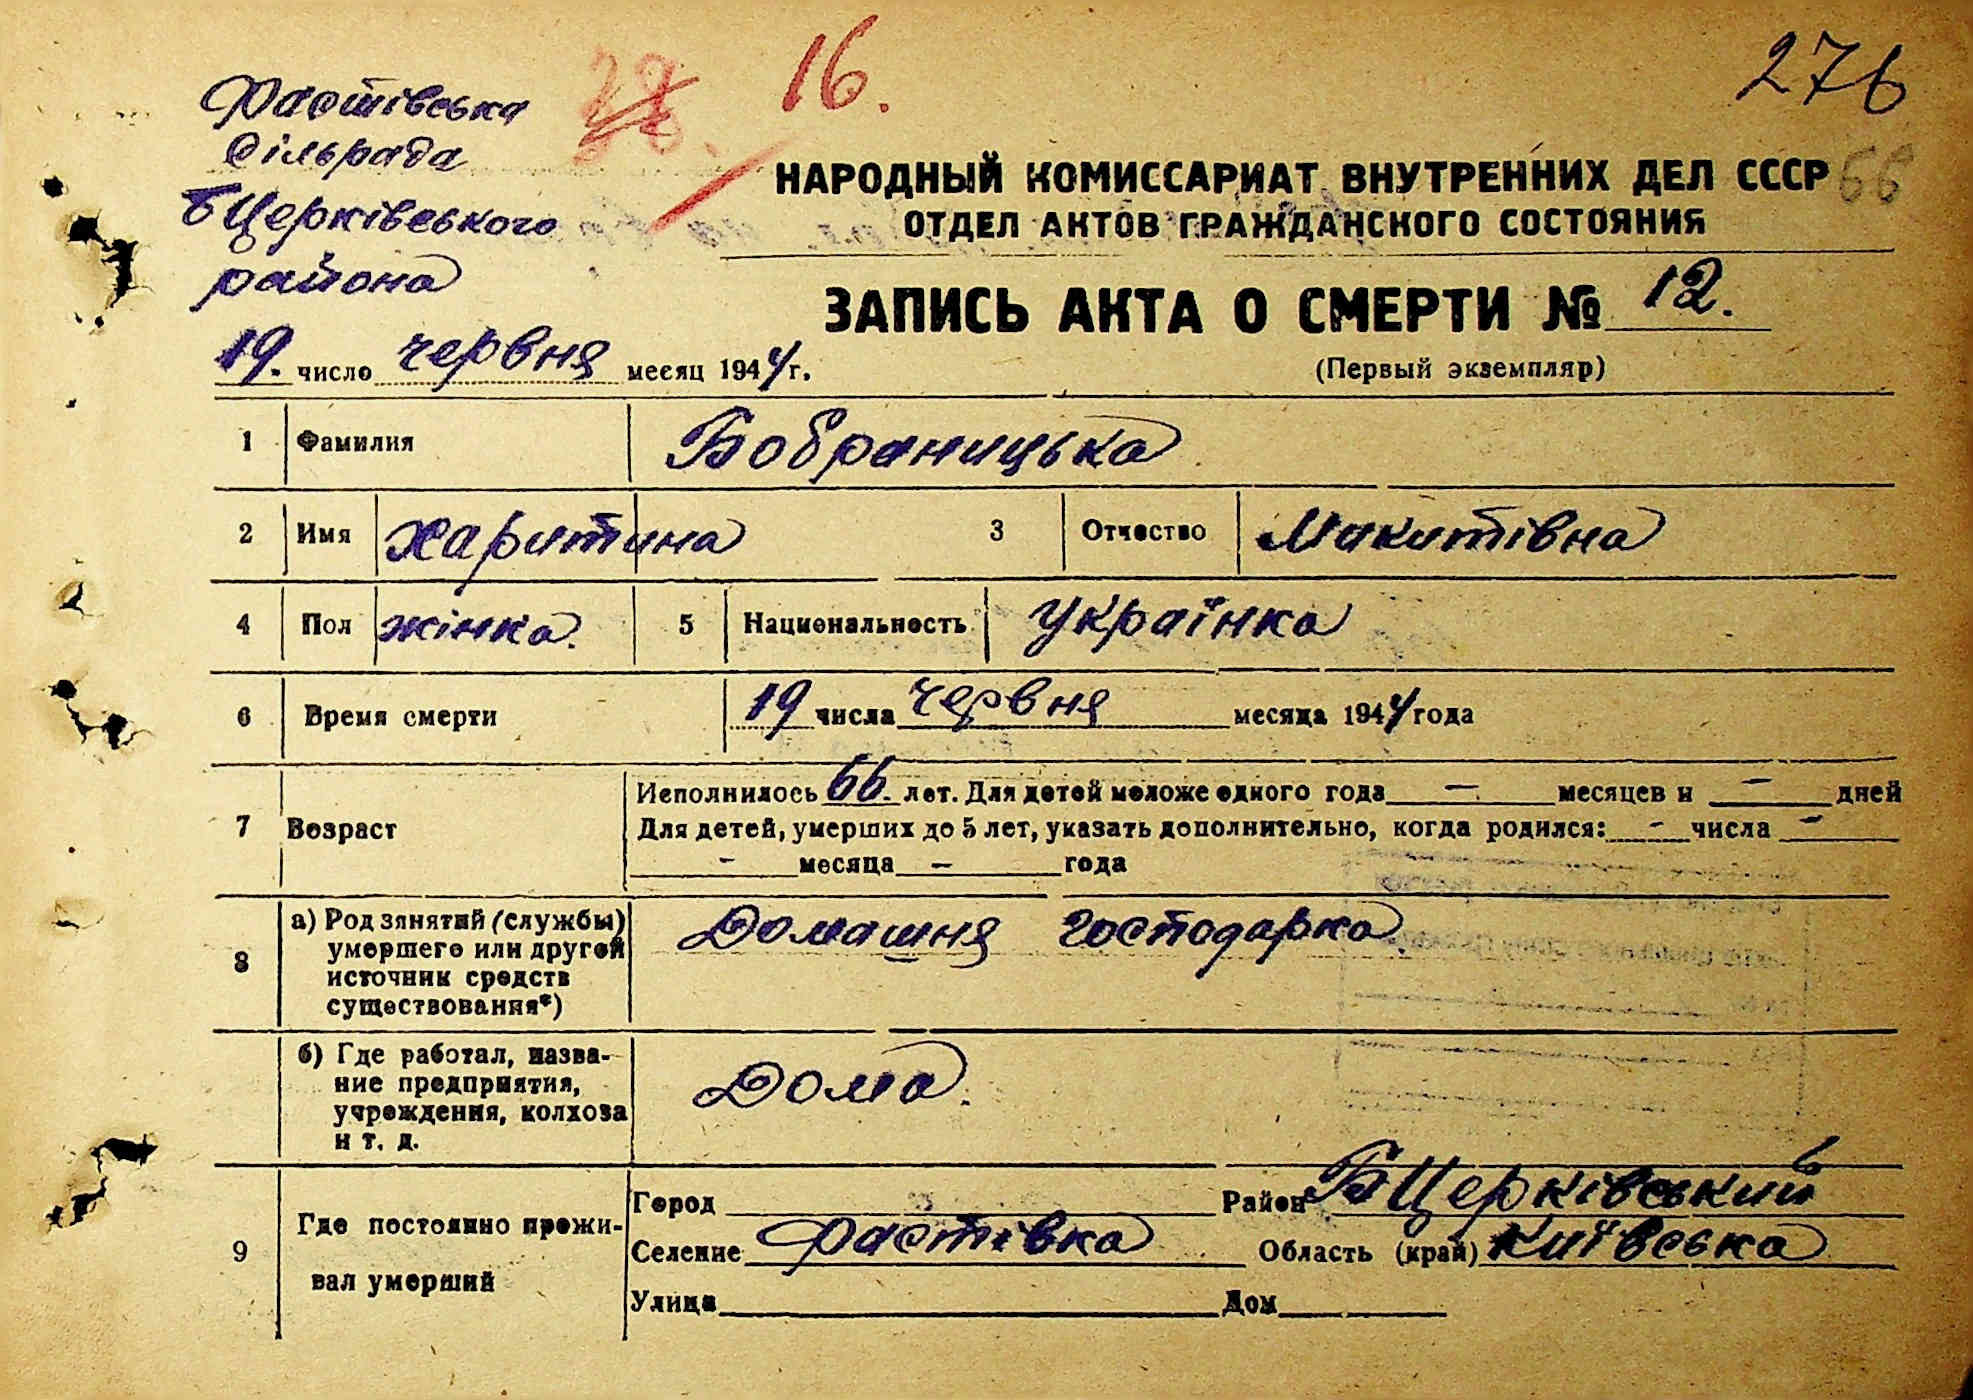 16.
276
Фастівська
сільрада
БЦерківського
района
НАРОДНЫЙ КОМИССАРИАТ ВНУТРЕННИХ ДЕЛ СССР
66
ОТДЕЛ АКТОВ ГРАЖДАНСКОГО СОСТОЯНИЯ
ЗАПИСЬ АКТА О СМЕРТИ № 12.
19. число червня месяц 1944 г.
(Первый экземпляр)
1 Фамилия Бобраницька
2 Имя Харитина 3 Отчество Микитівна
4 Пол жінка. 5 Национальность Українка
6 Время смерти 19 числа червня месяца 1944 года
7 Возраст Исполнилось 66. лет. Для детей моложе одного года — месяцев и — дней
Для детей, умерших до 5 лет, указать дополнительно, когда родился: - числа -
- месяца — года
8 а) Род занятий (службы) умершего или другой источник средств существования*) Домашня господарка.
б) Где работал, название предприятия, учреждения, колхоза и т. д. Дома.
9 Где постоянно проживал умерший
Город Район БЦерківський
Селение Фастівка Область (край) Київська
Улица Дом